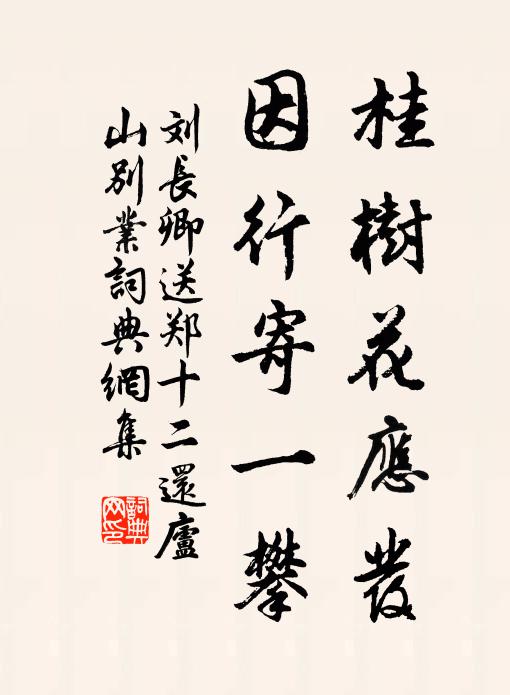 桂樹花應發
因行寄一攀
刘長卿送郑十二還廬
山别業詞典網集
詞典
网印